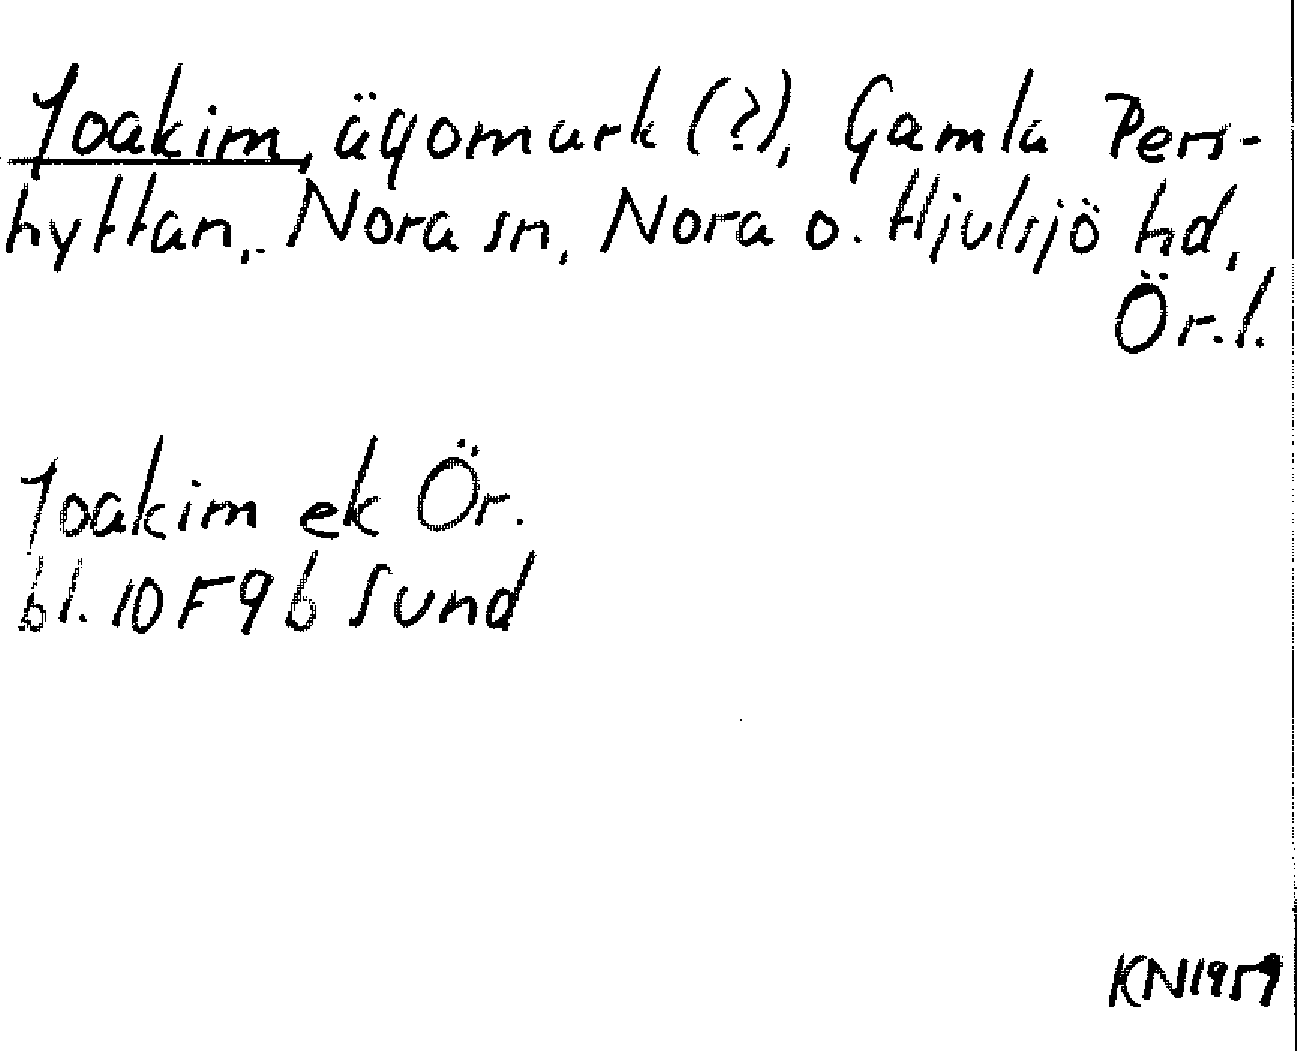 Joakim, ägomark (?), Gamla Pers-
hyttan, Nora sn, Nora o. Hjulsjö hd,
Ör.l.
Joakim ek Ör.
bl. 10F9b Sund
KN1959